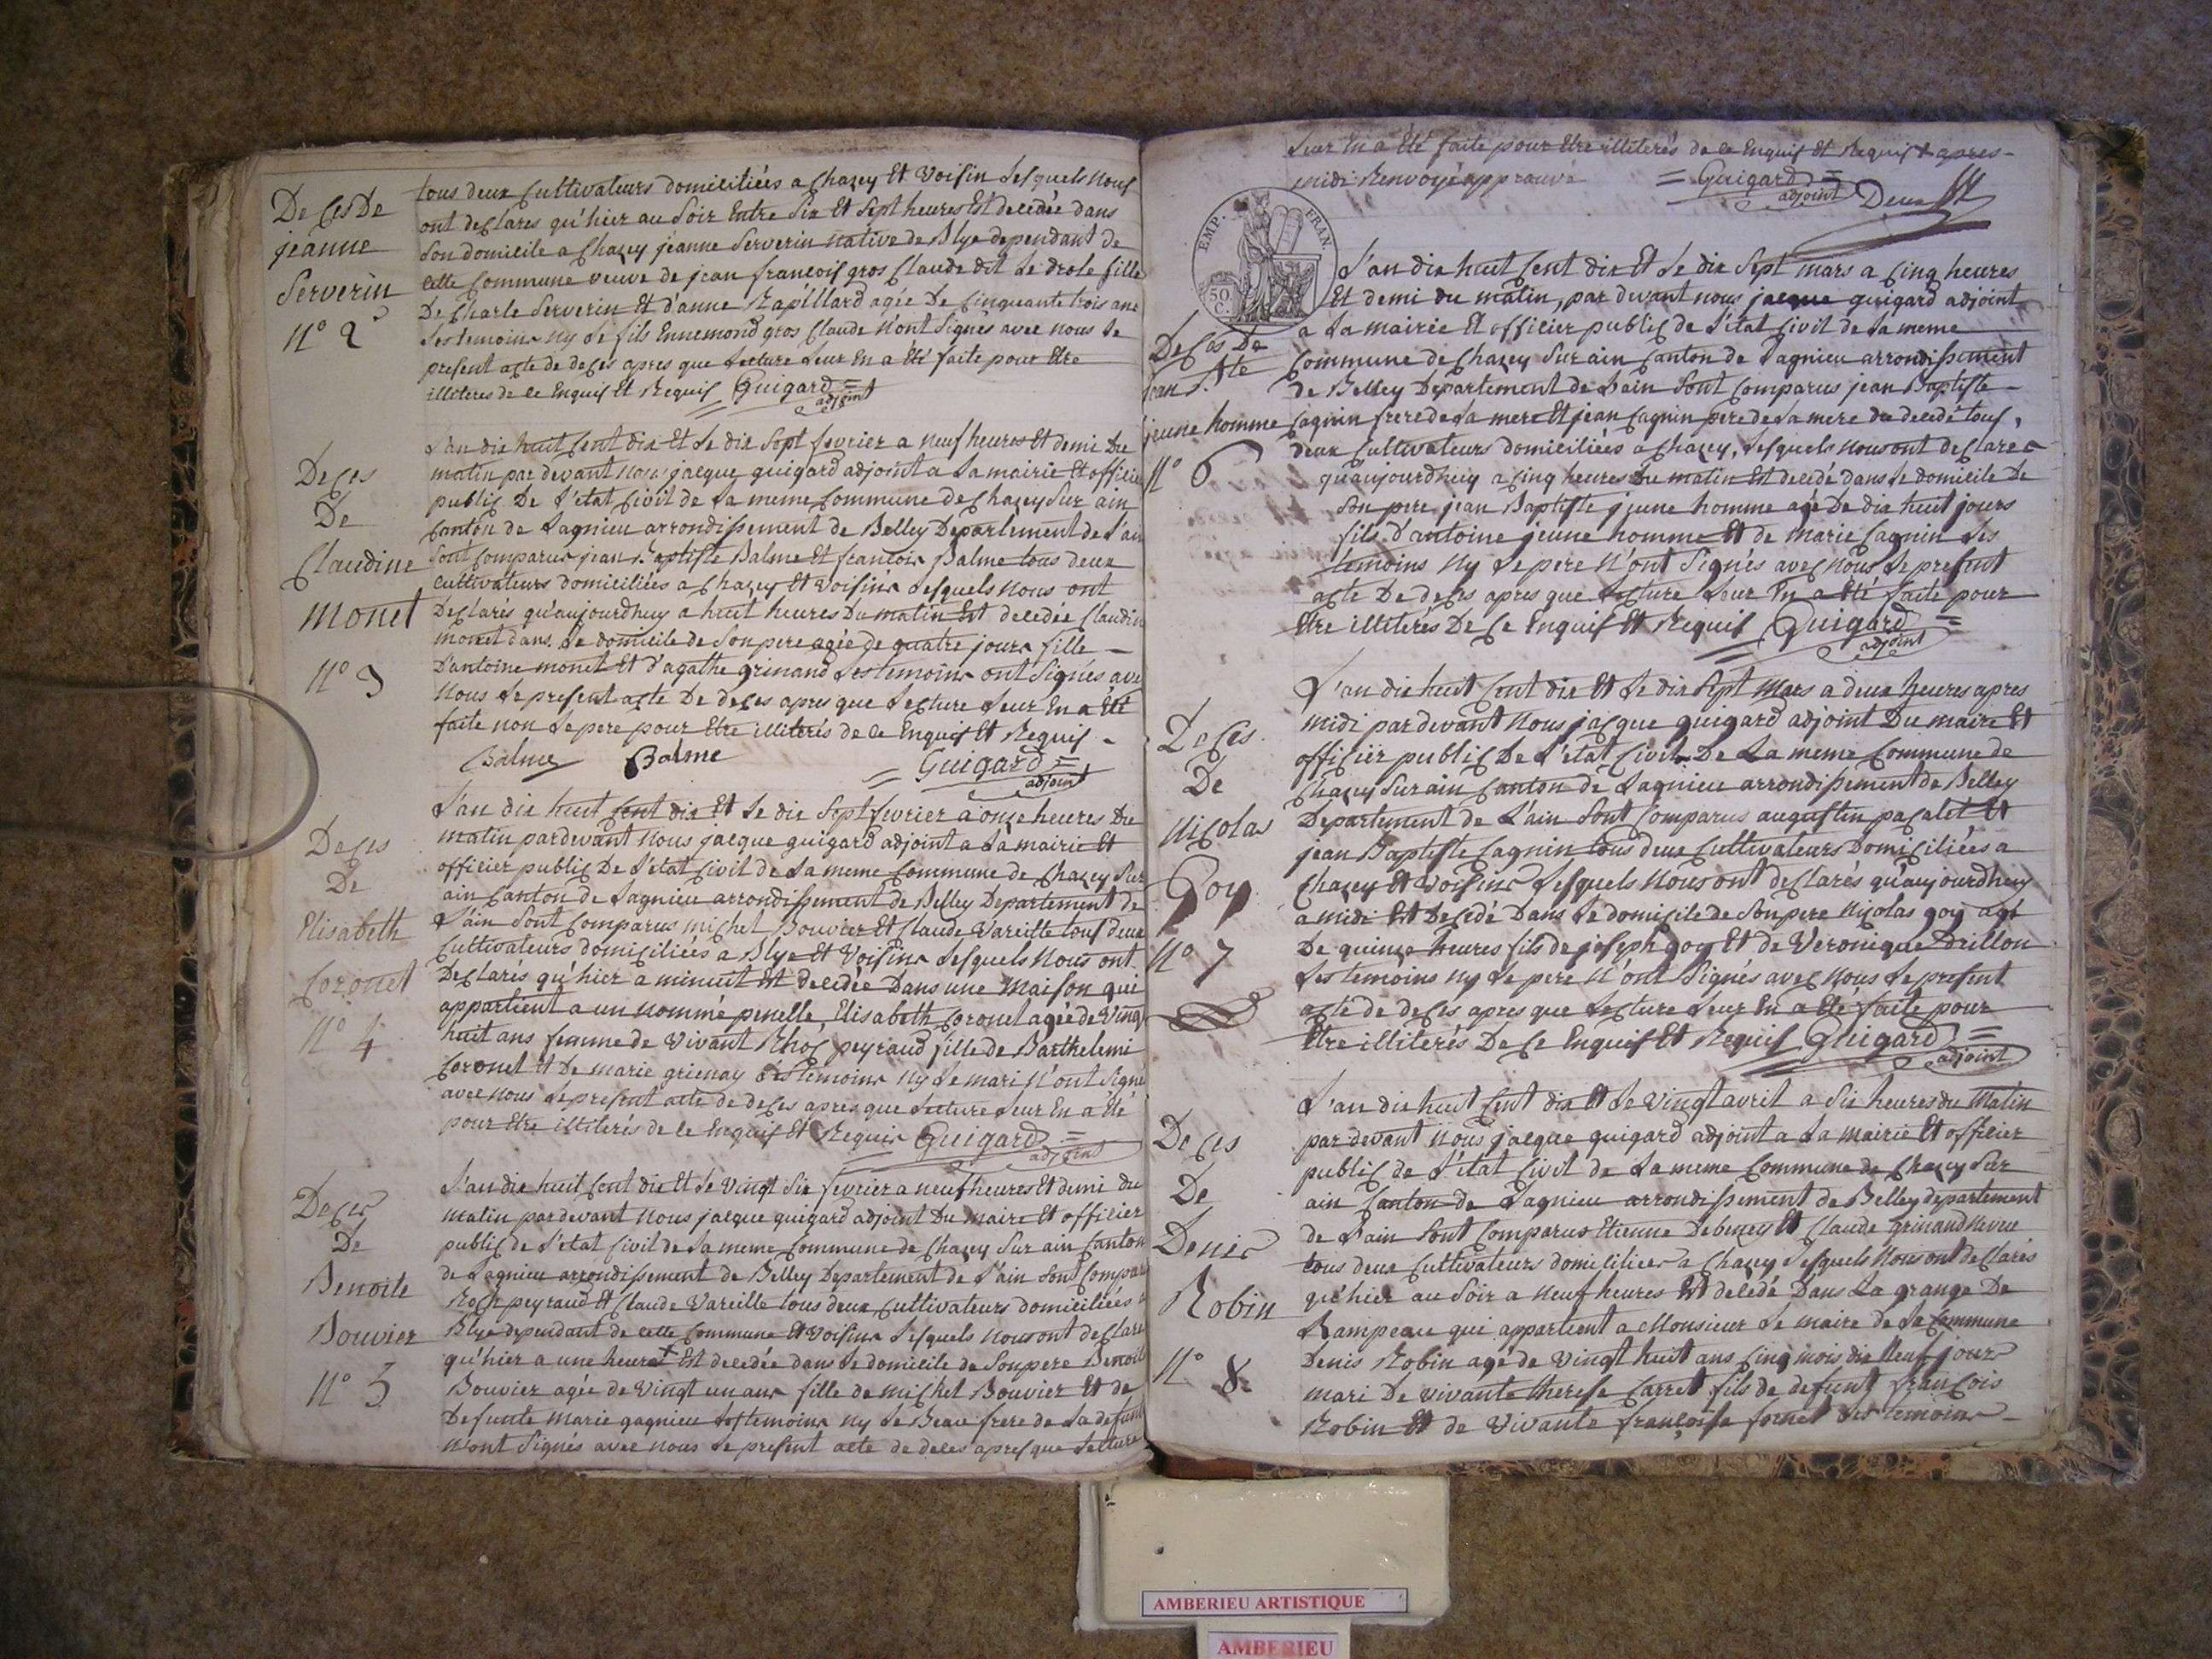 De ces De
jeanne
Serverin
N° 2
tous deux Cultivateurs domiciliées a Chazey Et Voisin Lesquels Nous
ont declares qu'hier au Soir Entre Six Et Sept heures Est decedée dans
Son domicile a Chazey jeanne Serverin native de Blye dependant de
Cette Commune veuve de jean francois gros Claude dit Le drole fille
De Charle Serverin Et d'anne Rapillard agée De Cinquante trois ans
Les temoins Ny Le fils Ennemond gros Claude N'ont Signés avec nous Le
present acte de deces apres que Lecture Leur En a Eté faite pour Etre
illiteres de Ce Enquis Et Requis Guigard
adjoint
Deces
De
Claudine
Monet
N° 3
L'an dix huit Cent dix Et Le dix Sept fevrier a neuf heures Et demi Du
matin par devant nous jacque guigard adjoint a La mairie Et officier
public De L'etat Civil de La meme Commune de Chazey Sur ain
Canton de Lagnieu arrondissement de Belley Departement de L'ain
Sont Comparus jean Baptiste Balme Et francois Balme tous deux
Cultivateurs domiciliées a Chazey Et Voisins Lesquels Nous ont
Declarés qu'aujourdhuy a huit heures Du matin Est decedée Claudine
monet dans Le domicile de Son pere agée de quatre jours fille
D'antoine monet Et d'agathe grinand Les temoins ont Signés avec
Nous Le present acte De deces apres que Lecture Leur En a Eté
faite non Le pere pour Etre illiterés de Ce Enquis Et Requis
Balme Balme Guigard
adjoint
Deces
De
Elisabeth
Coronet
N° 4
L'an dix huit Cent dix Et Le dix Sept fevrier a onze heures Du
matin pardevant Nous jacque guigard adjoint a La mairie Et
officier public De L'etat Civil de La meme Commune de Chazey Sur
ain Canton de Lagnieu arrondissement de Belley Departement de
L'ain Sont Comparus michel Bouvier Et Claude Vareille tous deux
Cultivateurs domiciliées a Blye Et Voisins Lesquels Nous ont
Declares qu'hier a minuit Est decedée Dans une maison qui
appartient a un nommé penelle, Elisabeth Coronet agée de Vingt
huit ans femme de Vivant Rhoc peyraud fille de Barthelemi
Coronet Et De marie grienay Les temoins Ny Le mari N'ont Signé
avec nous Le present acte de deces apres que Lecture Leur En a Eté
pour Etre illiterés de Ce Enquis Et Requis Guigard
adjoint
Deces
De
Benoite
Bouvier
N° 5
L'an dix huit Cent dix Et Le Vingt Six fevrier a neuf heures Et demi du
matin pardevant Nous jacque guigard adjoint Du maire Et officier
public de L'etat Civil de La meme Commune de Chazey Sur ain Canton
de Lagnieu arrondissement de Belley Departement de L'ain Sont Compar
Roch peyraud Et Claude Vareille tous deux Cultivateurs domiciliées
Blye dependant de Cette Commune Et Voisins Lesquels Nous ont declare
qu'hier a une heure + Est decedée dans Le domicile de Son pere Benoite
Bouvier agée de Vingt un ans fille de michel Bouvier Et de
Defunte Marie gagnieu Les temoins Ny Le Beau frere de La defunte
N'ont Signés avec nous Le present acte de deces apres que Lecture
Leur En a Eté faite pour Etre illiterés de Ce Enquis Et Requis + apres
midi Renvoyé approuvé Guigard
adjoint
EMP. FRAN.
50 C.
Deces De
Jean B.te
jeune homme
N° 6
L'an dix huit Cent dix Et Le dix Sept mars a Cinq heures
Et demi du matin, par devant nous jacque guigard adjoint
a La mairie Et officier public de L'etat Civil de La meme
Commune de Chazey Sur ain Canton de Lagnieu arrondissement
de Belley Departement de Lain Sont Comparus jean Baptiste
Cagnin frere de La mere Et jean Cagnin pere de La mere du decedé tous
deux Cultivateurs domiciliées a Chazey, Lesquels Nous ont declares
qu'aujourdhuy a Cinq heures Du matin Est decedé dans Le domicile De
Son pere jean Baptiste jeune homme agé De dix huit jours
fils d'antoine jeune homme Et de marie Cagnin Les
temoins Ny Le pere N'ont Signés avec Nous Le present
acte De deces apres que Lecture Leur En a Eté faite pour
Etre illiterés De Ce Enquis Et Requis Guigard
adjoint
Deces
De
Nicolas
Goy
N° 7
L'an dix huit Cent dix Et Le dix Sept Mars a deux heures apres
midi par devant Nous jacque guigard adjoint Du maire Et
officier public De L'etat Civil De La meme Commune de
Chazey Sur ain Canton de Lagnieu arrondissement de Belley
Departement de L'ain Sont Comparus augustin pacalet Et
jean Baptiste Cagnin tous deux Cultivateurs Domiciliées a
Chazey Et Voisins Lesquels Nous ont declarés qu'aujourdhuy
a midi Est Decedé Dans Le domicile de Son pere Nicolas goy agé
De quinze heures fils de joseph goy Et de Veronique Drillon
Les temoins Ny Le pere N'ont Signés avec Nous Le present
acte de deces apres que Lecture Leur En a Eté faite pour
Etre illiterés De Ce Enquis Et Requis Guigard
adjoint
Deces
De
Denis
Robin
N° 8
L'an dix huit Cent dix Et Le Vingt avril a Six heures du Matin
par devant Nous jacque guigard adjoint a La Mairie Et officier
public de L'etat Civil de La meme Commune de Chazey Sur
ain Canton de Lagnieu arrondissement de Belley departement
de L'ain Sont Comparus Etienne Debeney Et Claude grinand Neveu
tous deux Cultivateurs domicilies a Chazey Lesquels Nous ont declarés
qu'hier au Soir a Neuf heures Est decedé Dans La grange De
Rampeau qui appartient a Monsieur Le maire de La Commune
Denis Robin agé de Vingt huit ans Cinq mois dix Neuf jours
mari De vivante therese Carret fils de defunt francois
Robin Et de Vivante francoise fornet Les temoins
AMBERIEU ARTISTIQUE
AMBERIEU